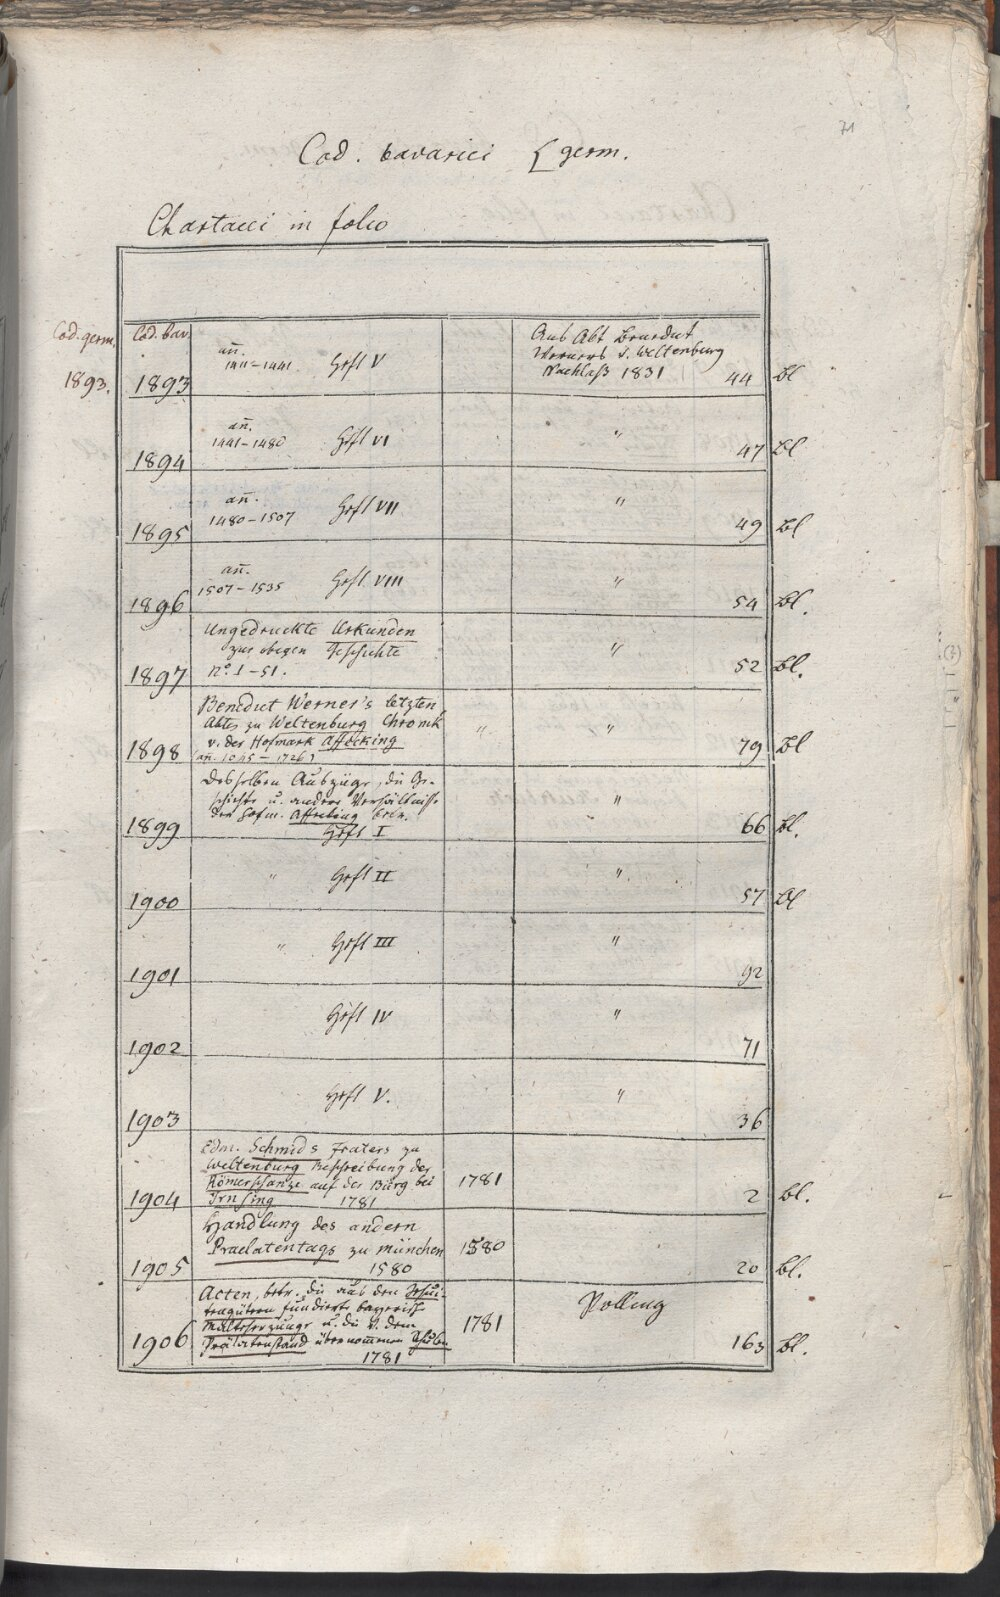 71
Cod. bavarici [germ.
Chartacei in folio
Cod. germ. Cod. bav.
Aus Abt Benedict
Werners v. Weltenburg
Nachlaß 1831
an̄. 1411–1441 Heft V
1893. 1893 44 Bl
an̄.
1441–1480 Heft VI "
1894 47 Bl
an̄.
1480–1507 Heft VII "
1895 49 Bl
an̄.
1507–1535 Heft VIII "
1896 54 Bl.
Ungedruckte Urkunden
zur obigen Geschichte "
1897 nº. I–51. 52 Bl.
Benedict Werner's letzten
Abtes zu Weltenburg Chronik " "
v. der Hofmark Affecking
1898 79 Bl
Desselben Auszüge, die Ge-
schichte u. andere Verhältnisse "
der Hofm. Affecking betr.
1899 Heft I 66 Bl.
" Heft II "
1900 57 Bl
" Heft III "
1901 92
Heft IV "
1902 71
Heft V. "
1903 36
Edm. Schmids Fraters zu
Weltenburg Beschreibung der
Römerschanze auf der Burg bei 1781
1904 Irnsing 1781 2 bl.
Handlung des andern
Praelatentags zu München 1580
1905 1580 20 bl.
Acten, betr. die aus den Jesui-
tengütern fundirte bayerisch Polling
Malteserzunge u. die v. dem 1781
1906 Prälatenstand übernommenen Schulen 163 Bl.
1781